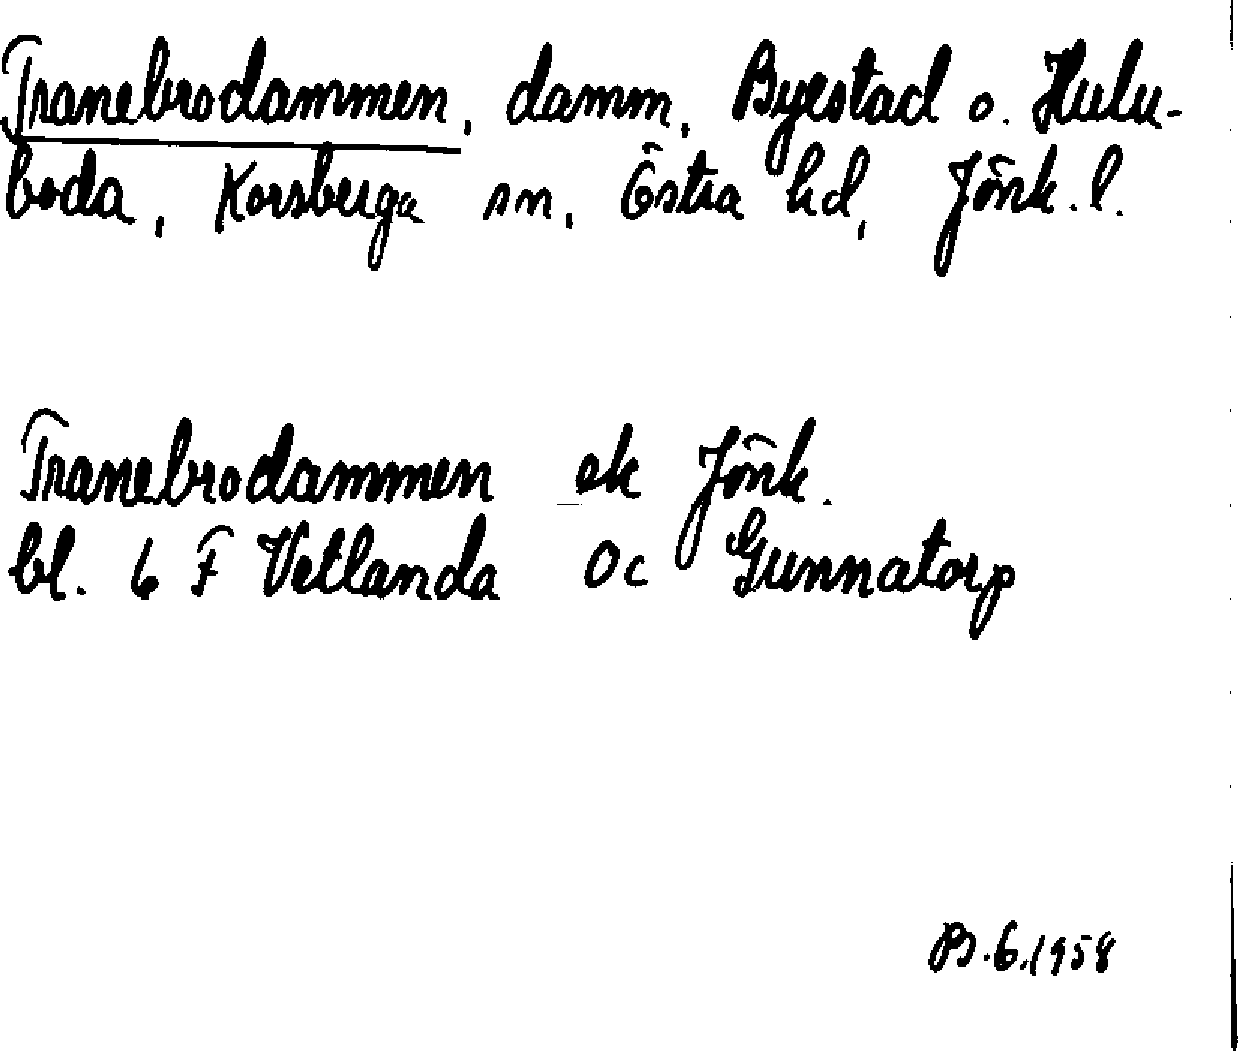 Tranebrodammen, damm, Byestad o. Hulu-
boda, Korsberga sn, Östra hd, Jönk. l.
Tranebrodammen ek Jönk.
bl. 6 F Vetlanda 0c Gunnatorp
B.6.1958